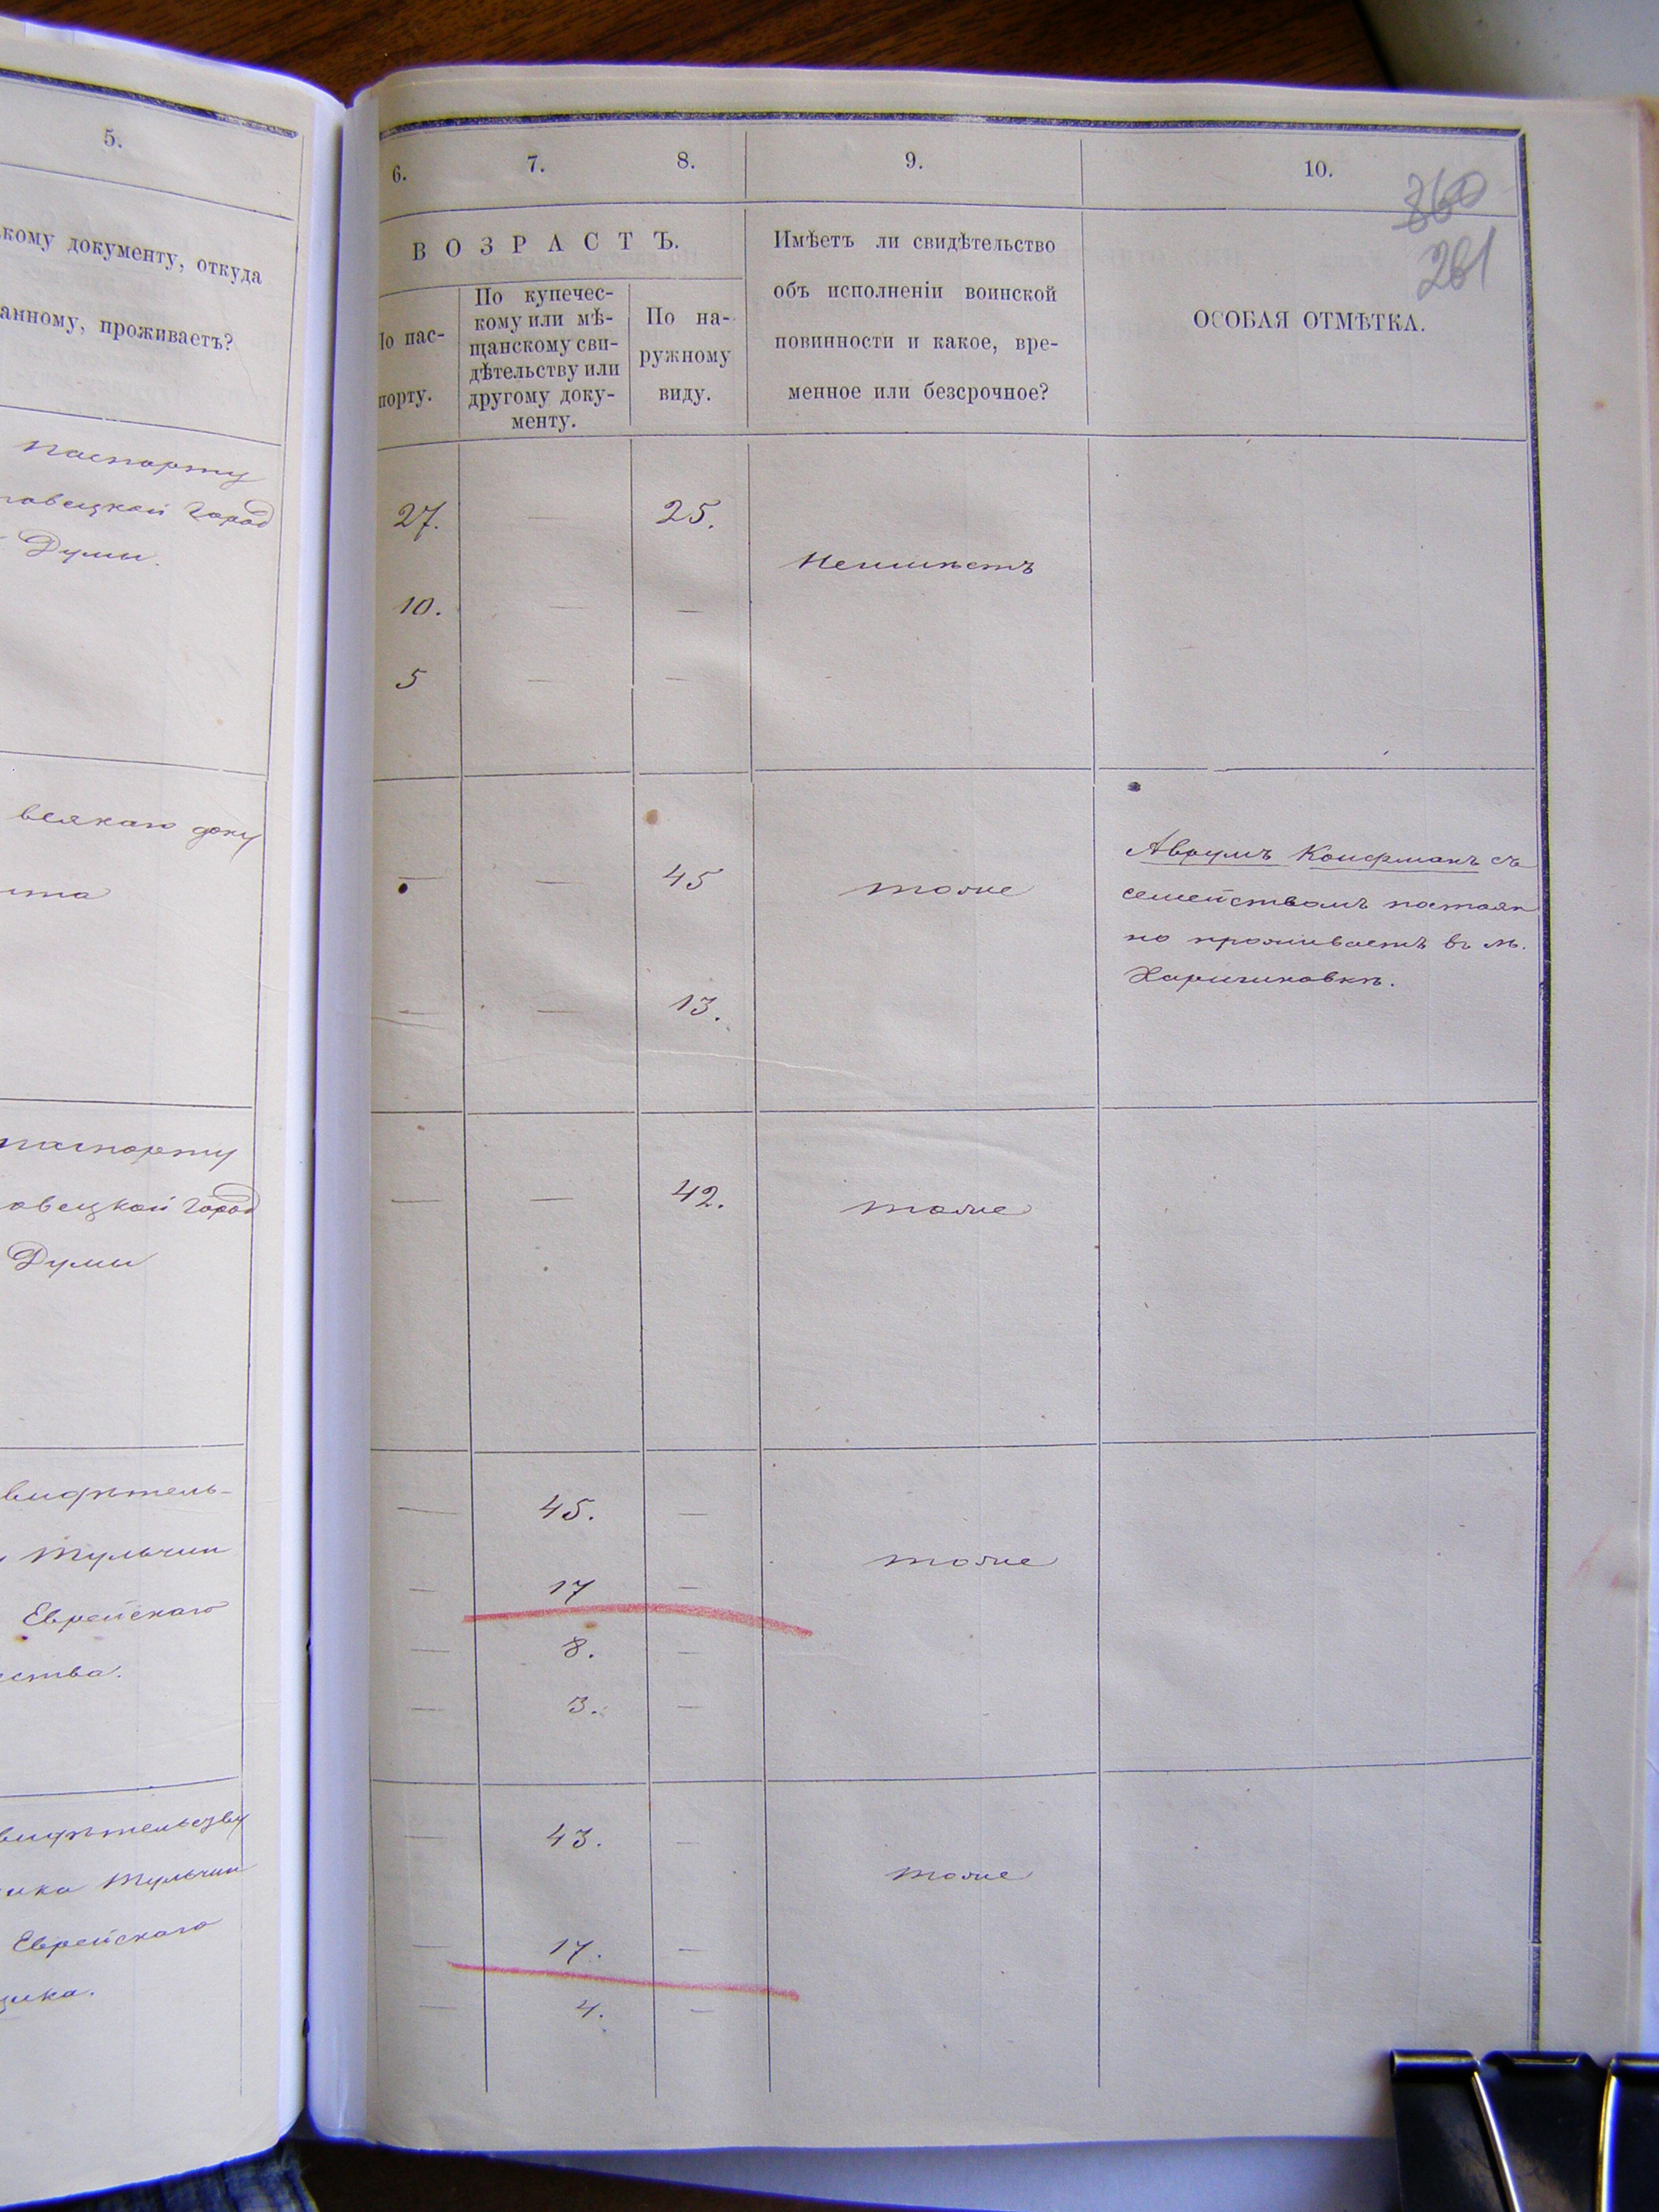 5.
кому документу, откуда
анному, проживаетъ?
паспорту
овецкой Город
Думы.
всякаго доку
паспорту
овецкой Город
Думы
видѣтель-
Тульчин
Еврейскаго
ства.
видѣтельству
Тульчин
Еврейскаго
6. 7. 8. 9. 10.
360
261
ВОЗРАСТЪ.
Имѣетъ ли свидѣтельство
объ исполненіи воинской
повинности и какое, вре-
менное или безсрочное?
ОСОБАЯ ОТМѢТКА.
По пас-
порту.
По купечес-
кому или мѣ-
щанскому сви-
дѣтельству или
другому доку-
менту.
По на-
ружному
виду.
27. — 25.
Неимѣетъ
10. — —
5 — —
— — 45 тоже
Аврумъ Койфманъ съ
семействомъ постоян
но проживаетъ въ м.
— — 13.
— — 42. тоже
— 45. —
тоже
— 17 —
— 8. —
— 3. —
— 43. —
тоже
— 17. —
— 4. —